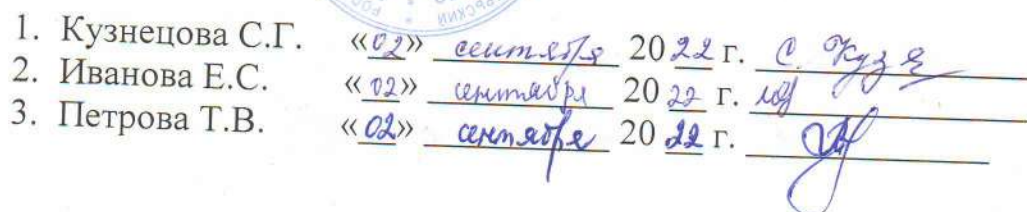 1. Кузнецова С.Г. «02» сентября 2022 г. С. Кузя
2. Иванова Е.С. «02» сентября 2022 г.
3. Петрова Т.В. «02» сентября 2022 г.